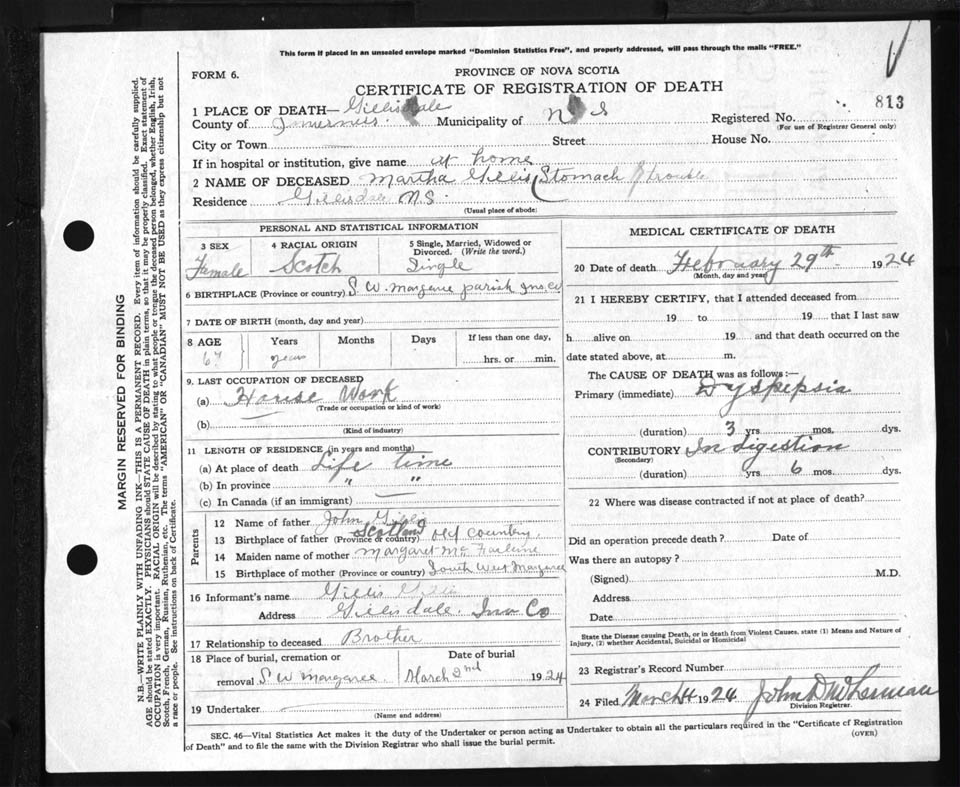 This form if placed in an unsealed envelope marked "Dominion Statistics Free", and properly addressed, will pass through the mails "FREE."
FORM 6.
PROVINCE OF NOVA SCOTIA
CERTIFICATE OF REGISTRATION OF DEATH
813
1 PLACE OF DEATH— Gillisdale
County of Inverness Municipality of N S Registered No.
(For use of Registrar General only)
City or Town Street House No.
If in hospital or institution, give name at home
2 NAME OF DECEASED Martha Gillis (Stomach Trouble
Residence Gillisdale N.S.
(Usual place of abode)
PERSONAL AND STATISTICAL INFORMATION
3 SEX 4 RACIAL ORIGIN 5 Single, Married, Widowed or Divorced. (Write the word.)
Female Scotch Single
6 BIRTHPLACE (Province or country) S. W. Margaree parish Inv. Co
7 DATE OF BIRTH (month, day and year)
8 AGE Years Months Days If less than one day,
67 years hrs. or min.
9. LAST OCCUPATION OF DECEASED
(a) House Work
(Trade or occupation or kind of work)
(b)
(Kind of industry)
11 LENGTH OF RESIDENCE (in years and months)
(a) At place of death Life time
(b) In province " "
(c) In Canada (if an immigrant)
Parents
12 Name of father John Gillis
13 Birthplace of father (Province or country) Scotland old country
14 Maiden name of mother Margaret Mc Farlene
15 Birthplace of mother (Province or country) South West Margaree
16 Informant's name Gillis
Address Gillisdale. Inv Co
17 Relationship to deceased Brother
18 Place of burial, cremation or removal S W Margaree Date of burial March 2nd 1924
19 Undertaker
(Name and address)
MEDICAL CERTIFICATE OF DEATH
20 Date of death February 29th 1924
(Month, day and year)
21 I HEREBY CERTIFY, that I attended deceased from
19 to 19 that I last saw
h alive on 19 and that death occurred on the
date stated above, at m.
The CAUSE OF DEATH was as follows:—
Primary (immediate) Dyspepsia
(duration) 3 yrs. mos. dys.
CONTRIBUTORY Indigestion
(Secondary)
(duration) yrs 6 mos. dys.
22 Where was disease contracted if not at place of death?
Did an operation precede death? Date of
Was there an autopsy?
(Signed) M.D.
Address
Date
State the Disease causing Death, or in death from Violent Causes, state (1) Means and Nature of
Injury, (2) whether Accidental, Suicidal or Homicidal
23 Registrar's Record Number
24 Filed March 4 1924 John D
Division Registrar.
SEC. 46—Vital Statistics Act makes it the duty of the Undertaker or person acting as Undertaker to obtain all the particulars required in the "Certificate of Registration
of Death" and to file the same with the Division Registrar who shall issue the burial permit.
(OVER)
MARGIN RESERVED FOR BINDING
N.B.—WRITE PLAINLY WITH UNFADING INK—THIS IS A PERMANENT RECORD. Every item of information should be carefully supplied.
AGE should be stated EXACTLY. PHYSICIANS should STATE CAUSE OF DEATH in plain terms, so that it may be properly classified. Exact statement of
OCCUPATION is very important. RACIAL ORIGIN will be described by stating to what people or tongue the deceased person belonged, whether English, Irish,
Scotch, French, German, Russian, Ruthenian, etc. The terms "AMERICAN" OR "CANADIAN" MUST NOT BE USED as they express citizenship but not
a race or people. See instructions on back of Certificate.